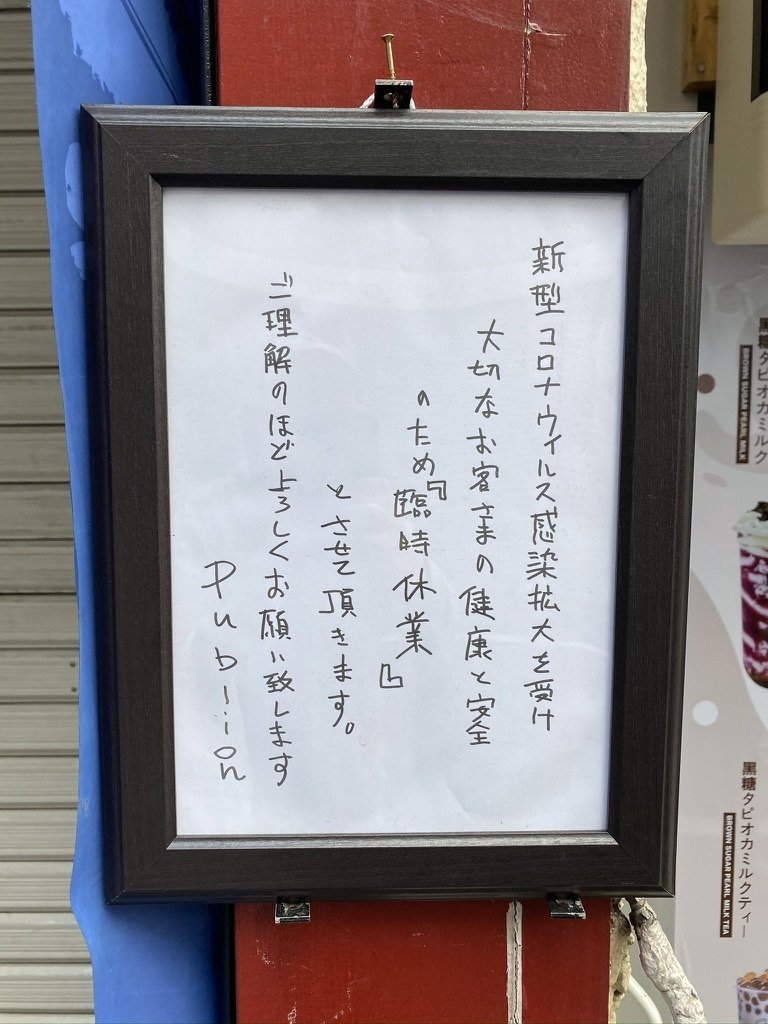 新型コロナウイルス感染拡大を受け
大切なお客さまの健康と安全
のため『臨時休業』
とさせて頂きます。
ご理解のほどよろしくお願い致します
Publion
黒糖タピオカミルク
BROWN SUGAR PEARL MILK
黒糖タピオカミルクティー
BROWN SUGAR PEARL MILK TEA